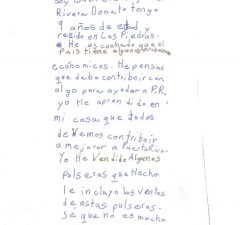 Rivera Donate tengo
9 años de edad y
resido en Las Piedras.
He escuchado que el
País tiene algunos
económicos. He pensado
que debo contribuir con
algo para ayudar a P.R.
yo He aprendido en
mi casa que todos
devemos contribuir
a mejorar a Puerto Rico.
Yo He Vendido Algunas
Pulseras que Hecho
le incluyo las ventas
de estas pulseras.
se que no es mucho